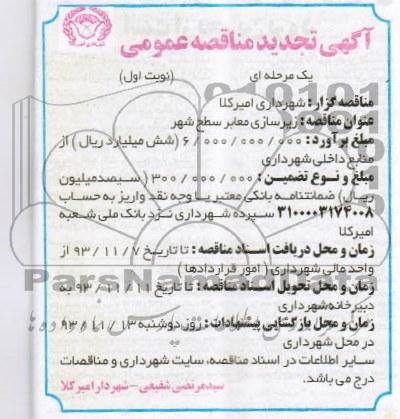 آگهی تجدید مناقصه عمومی
یک مرحله ای (نوبت اول)
مناقصه گزار: شهرداری امیرکلا
عنوان مناقصه: زیرسازی معابر سطح شهر
مبلغ برآورد: ۶/۰۰۰/۰۰۰/۰۰۰ (شش میلیارد ریال) از
منابع داخلی شهرداری
مبلغ و نوع تضمین: ۳۰۰/۰۰۰/۰۰۰ (سیصدمیلیون
ریال) ضمانتنامه بانکی معتبر یا وجه نقد واریز به حساب
۳۱۰۰۰۰۳۱۷۴۰۰۸ سپرده شهرداری نزد بانک ملی شعبه
امیرکلا
زمان و محل دریافت اسناد مناقصه: تا تاریخ ۹۳/۱۱/۷ از
واحد مالی شهرداری (امور قراردادها)
زمان و محل تحویل اسناد مناقصه: تا تاریخ ۹۳/۱۱/۱۱ به
دبیرخانه شهرداری
زمان و محل بازگشایی پیشنهادات: روز دوشنبه ۹۳/۱۱/۱۳
در محل شهرداری
سایر اطلاعات در اسناد مناقصه، سایت شهرداری و مناقصات
درج می باشد.
سیدمرتضی شفیعی - شهردار امیرکلا